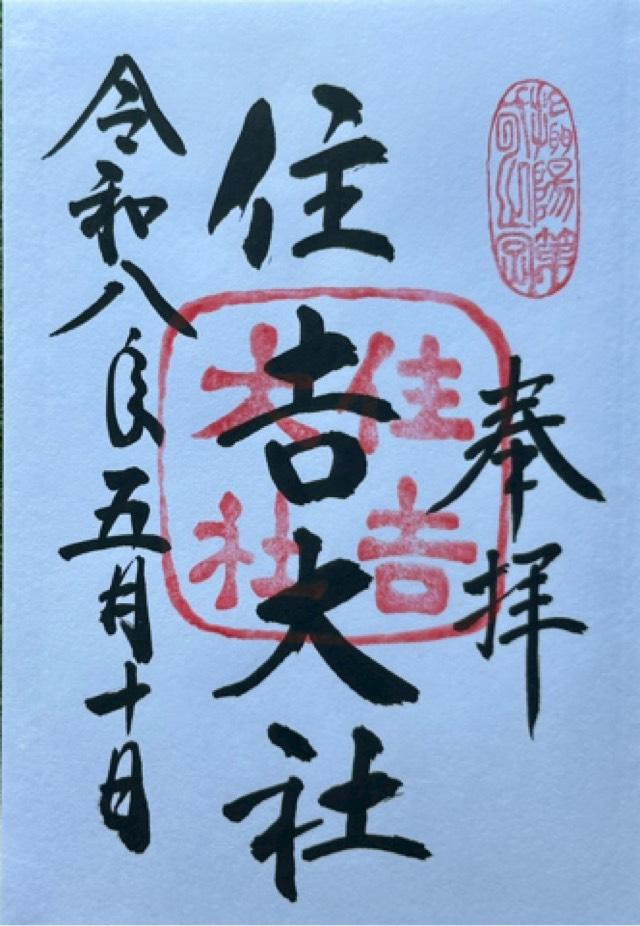 奉拝
住吉大社
住吉
大社
令和八年五月十日